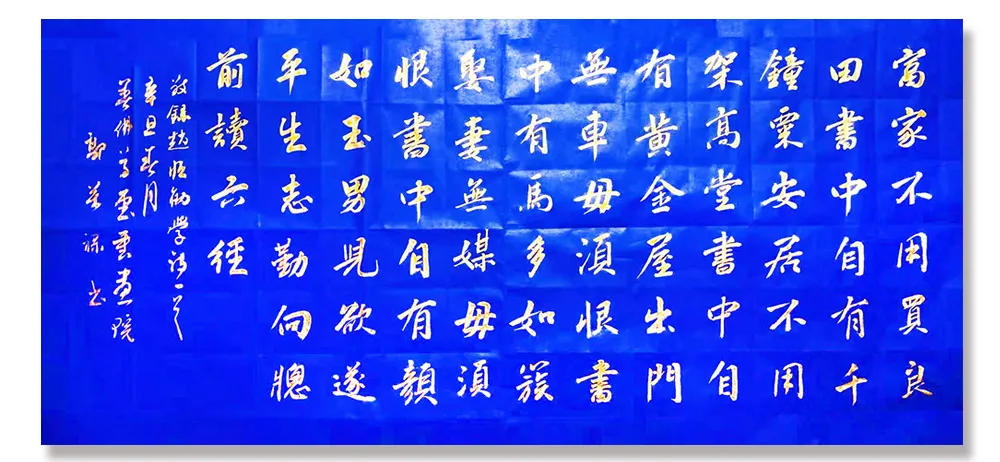 富家不用買良
田書中自有千
鐘粟安居不用
架髙堂書中自
有黄金屋出門
無車毋須恨書
中有馬多如簇
娶妻無媒毋須
恨書中自有顏
如玉男兒欲遂
平生志勤向牕
前讀六經
敬錄趙恒勸學詩一首
辛丑春月
畫院
書